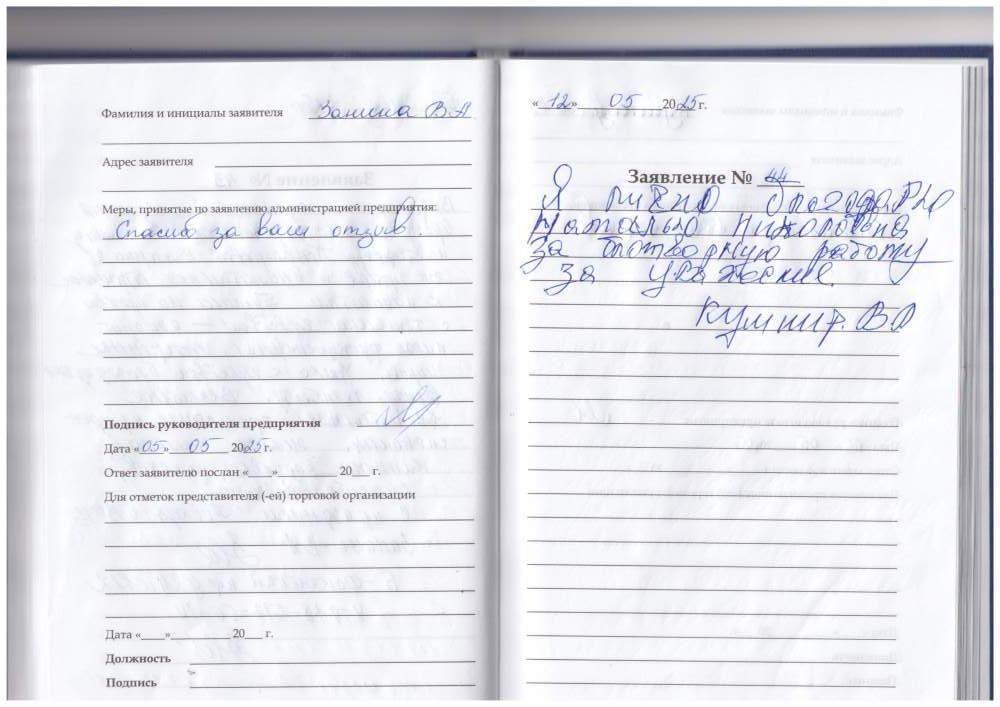 Фамилия и инициалы заявителя Занина В.А
Адрес заявителя
Меры, принятые по заявлению администрацией предприятия:
Спасиб за ваш отзыв.
Подпись руководителя предприятия
Дата «05» 05 2025 г.
Ответ заявителю послан «___»__________ 20___ г.
Для отметок представителя (-ей) торговой организации
Дата «____»__________ 20___ г.
Должность
Подпись
«12» 05 2025г.
Заявление № 44
Я лично благодарю
Наталью Николаевна
за работу
за уважение.
В